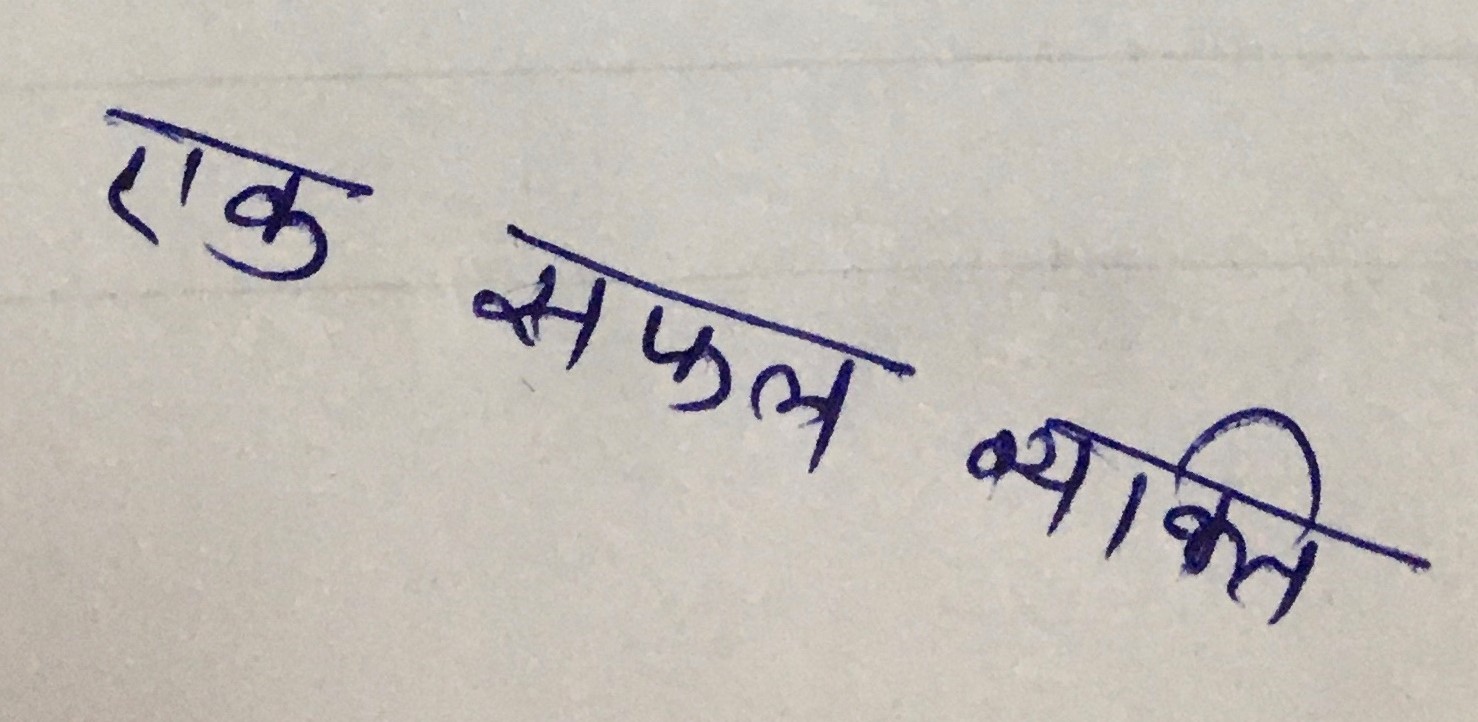 एक सफल व्यक्ति